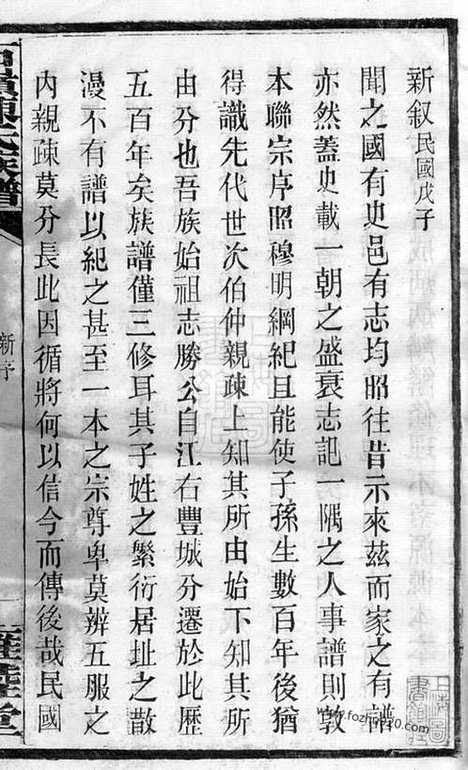 新叙民國戊子
聞之國有史邑有志均昭往昔示來兹而家之有譜
亦然蓋史載一朝之盛衰志記一隅之人事譜則敦
本聯宗序昭穆明綱紀且能使子孫生數百年後猶
得識先代世次伯仲親疎上知其所由始下知其所
由分也吾族始祖志勝公自江右豐城分遷於此歷
五百年矣族譜僅三修耳其子姓之繁衍居址之散
漫不有譜以紀之甚至一本之宗尊卑莫辨五服之
内親疎莫分長此因循將何以信今而傳後哉民國
陳氏族譜
新序
一
堂
www.fozhu920.com